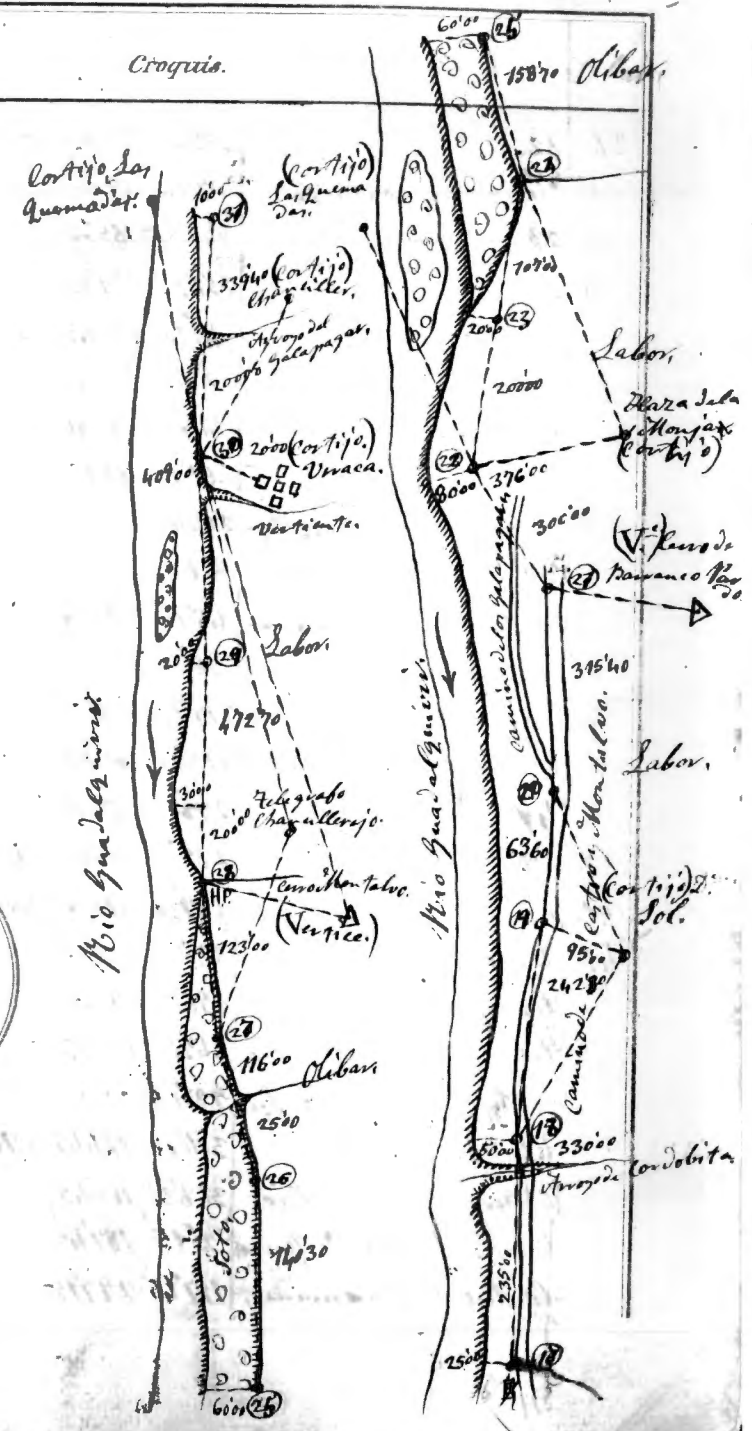 Croquis.
Cortijo, Las
Quemadas.
10'00
31
(Cortijo)
Las Quema
das.
339'40
(Cortijo)
Chantiller.
Arroyo del
Galapagar.
200'00
30
20'00
(Cortijo.)
Urraca.
409'00
Vertiente.
20'00
29
Labor.
472'70
30'00
200'00
Telegrafo
Chancillerejo.
28
HP.
Cerro Montalvo.
(Vertice.)
123'00
27
116'00
Olibar.
25'00
26
Soto.
140'30
60'00
25
Rio Guadalquivir.
60'00
25
158'70
Olibar.
24
107'00
20'00
23
Labor.
200'00
Haza dela
Monja
(Cortijo)
22
80'00
376'00
300'00
(V.e)
Cerro de
Barranco Par
do.
21
Camino de los Galapagares
315'40
Labor.
20
63'60
(Cortijo) D.
Sol.
19
95'00
242'80
Camino de Castro y Montalvo.
18
50'00
330'00
Arroyo de Cordobita
235'00
25'00
Rio Guadalquivir.